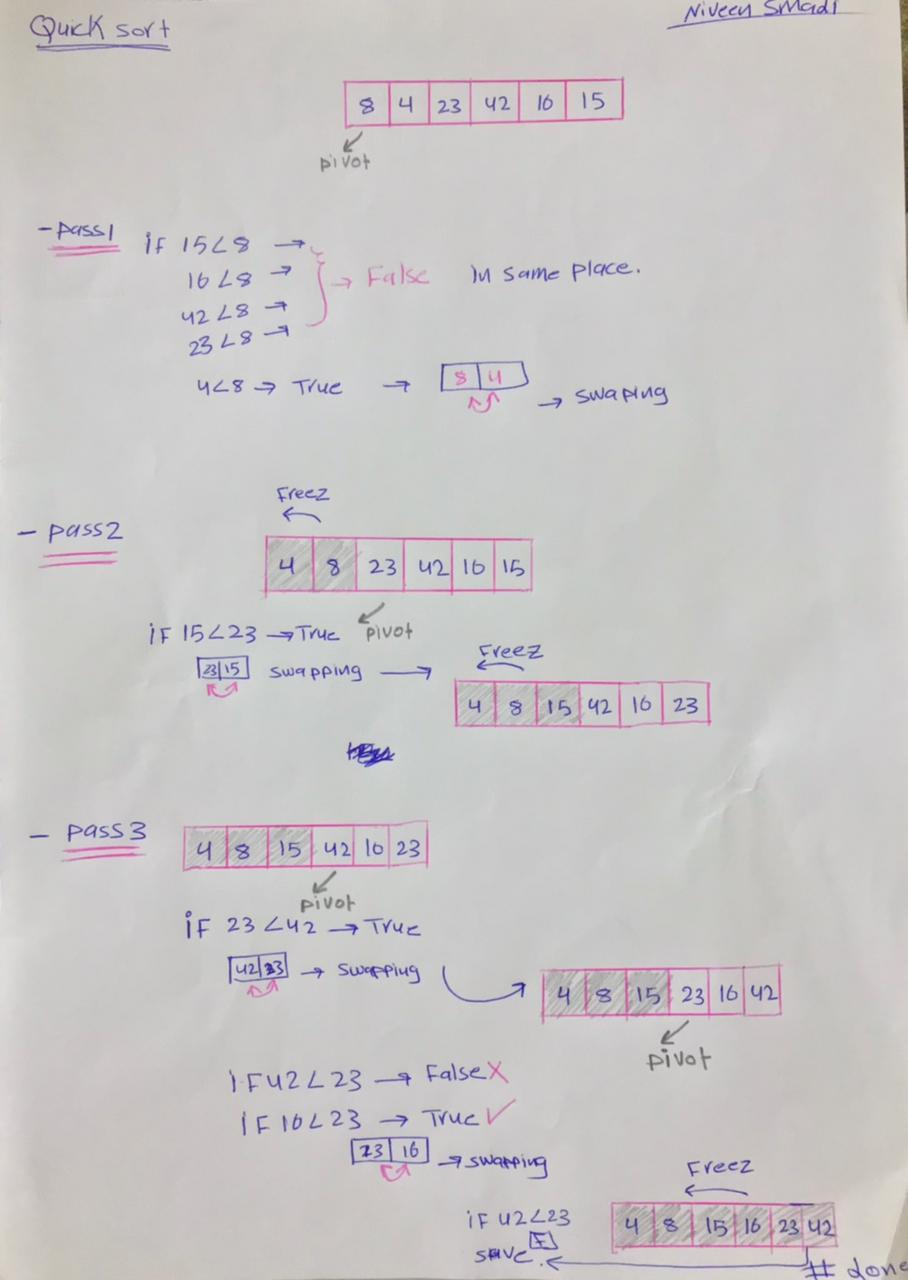 Quick sort
Niveen Smadi
8 4 23 42 16 15
pivot
- pass1
if 15<8 →
16<8 →
42<8 →
23<8 →
→ False In same place.
4<8 → True → 8 4 → swaping
- pass2
Freez
4 8 23 42 16 15
if 15<23 → True pivot
23 15 swapping →
Freez
4 8 15 42 16 23
- pass3
4 8 15 42 16 23
pivot
if 23<42 → True
42 23 → swapping
4 8 15 23 16 42
pivot
if 42<23 → False X
if 16<23 → True ✓
23 16 → swapping
Freez
if 42<23
4 8 15 16 23 42
F
# done